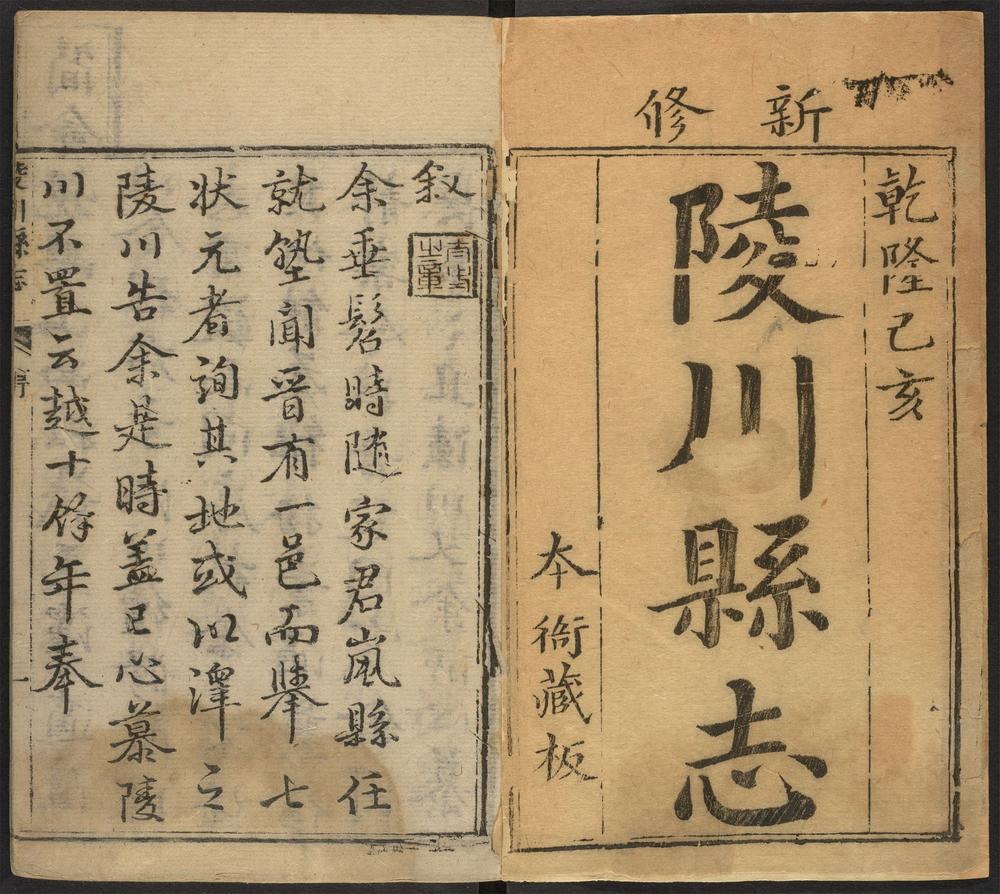 新修
乾隆己亥
陵川縣志
本衙藏板
叙
余垂髫時隨家君嵐縣任
就塾聞晉有一邑而舉七
狀元者詢其地或以澤之
陵川告余是時蓋已心慕陵
川不置云越十餘年奉
陵川縣志
序
一